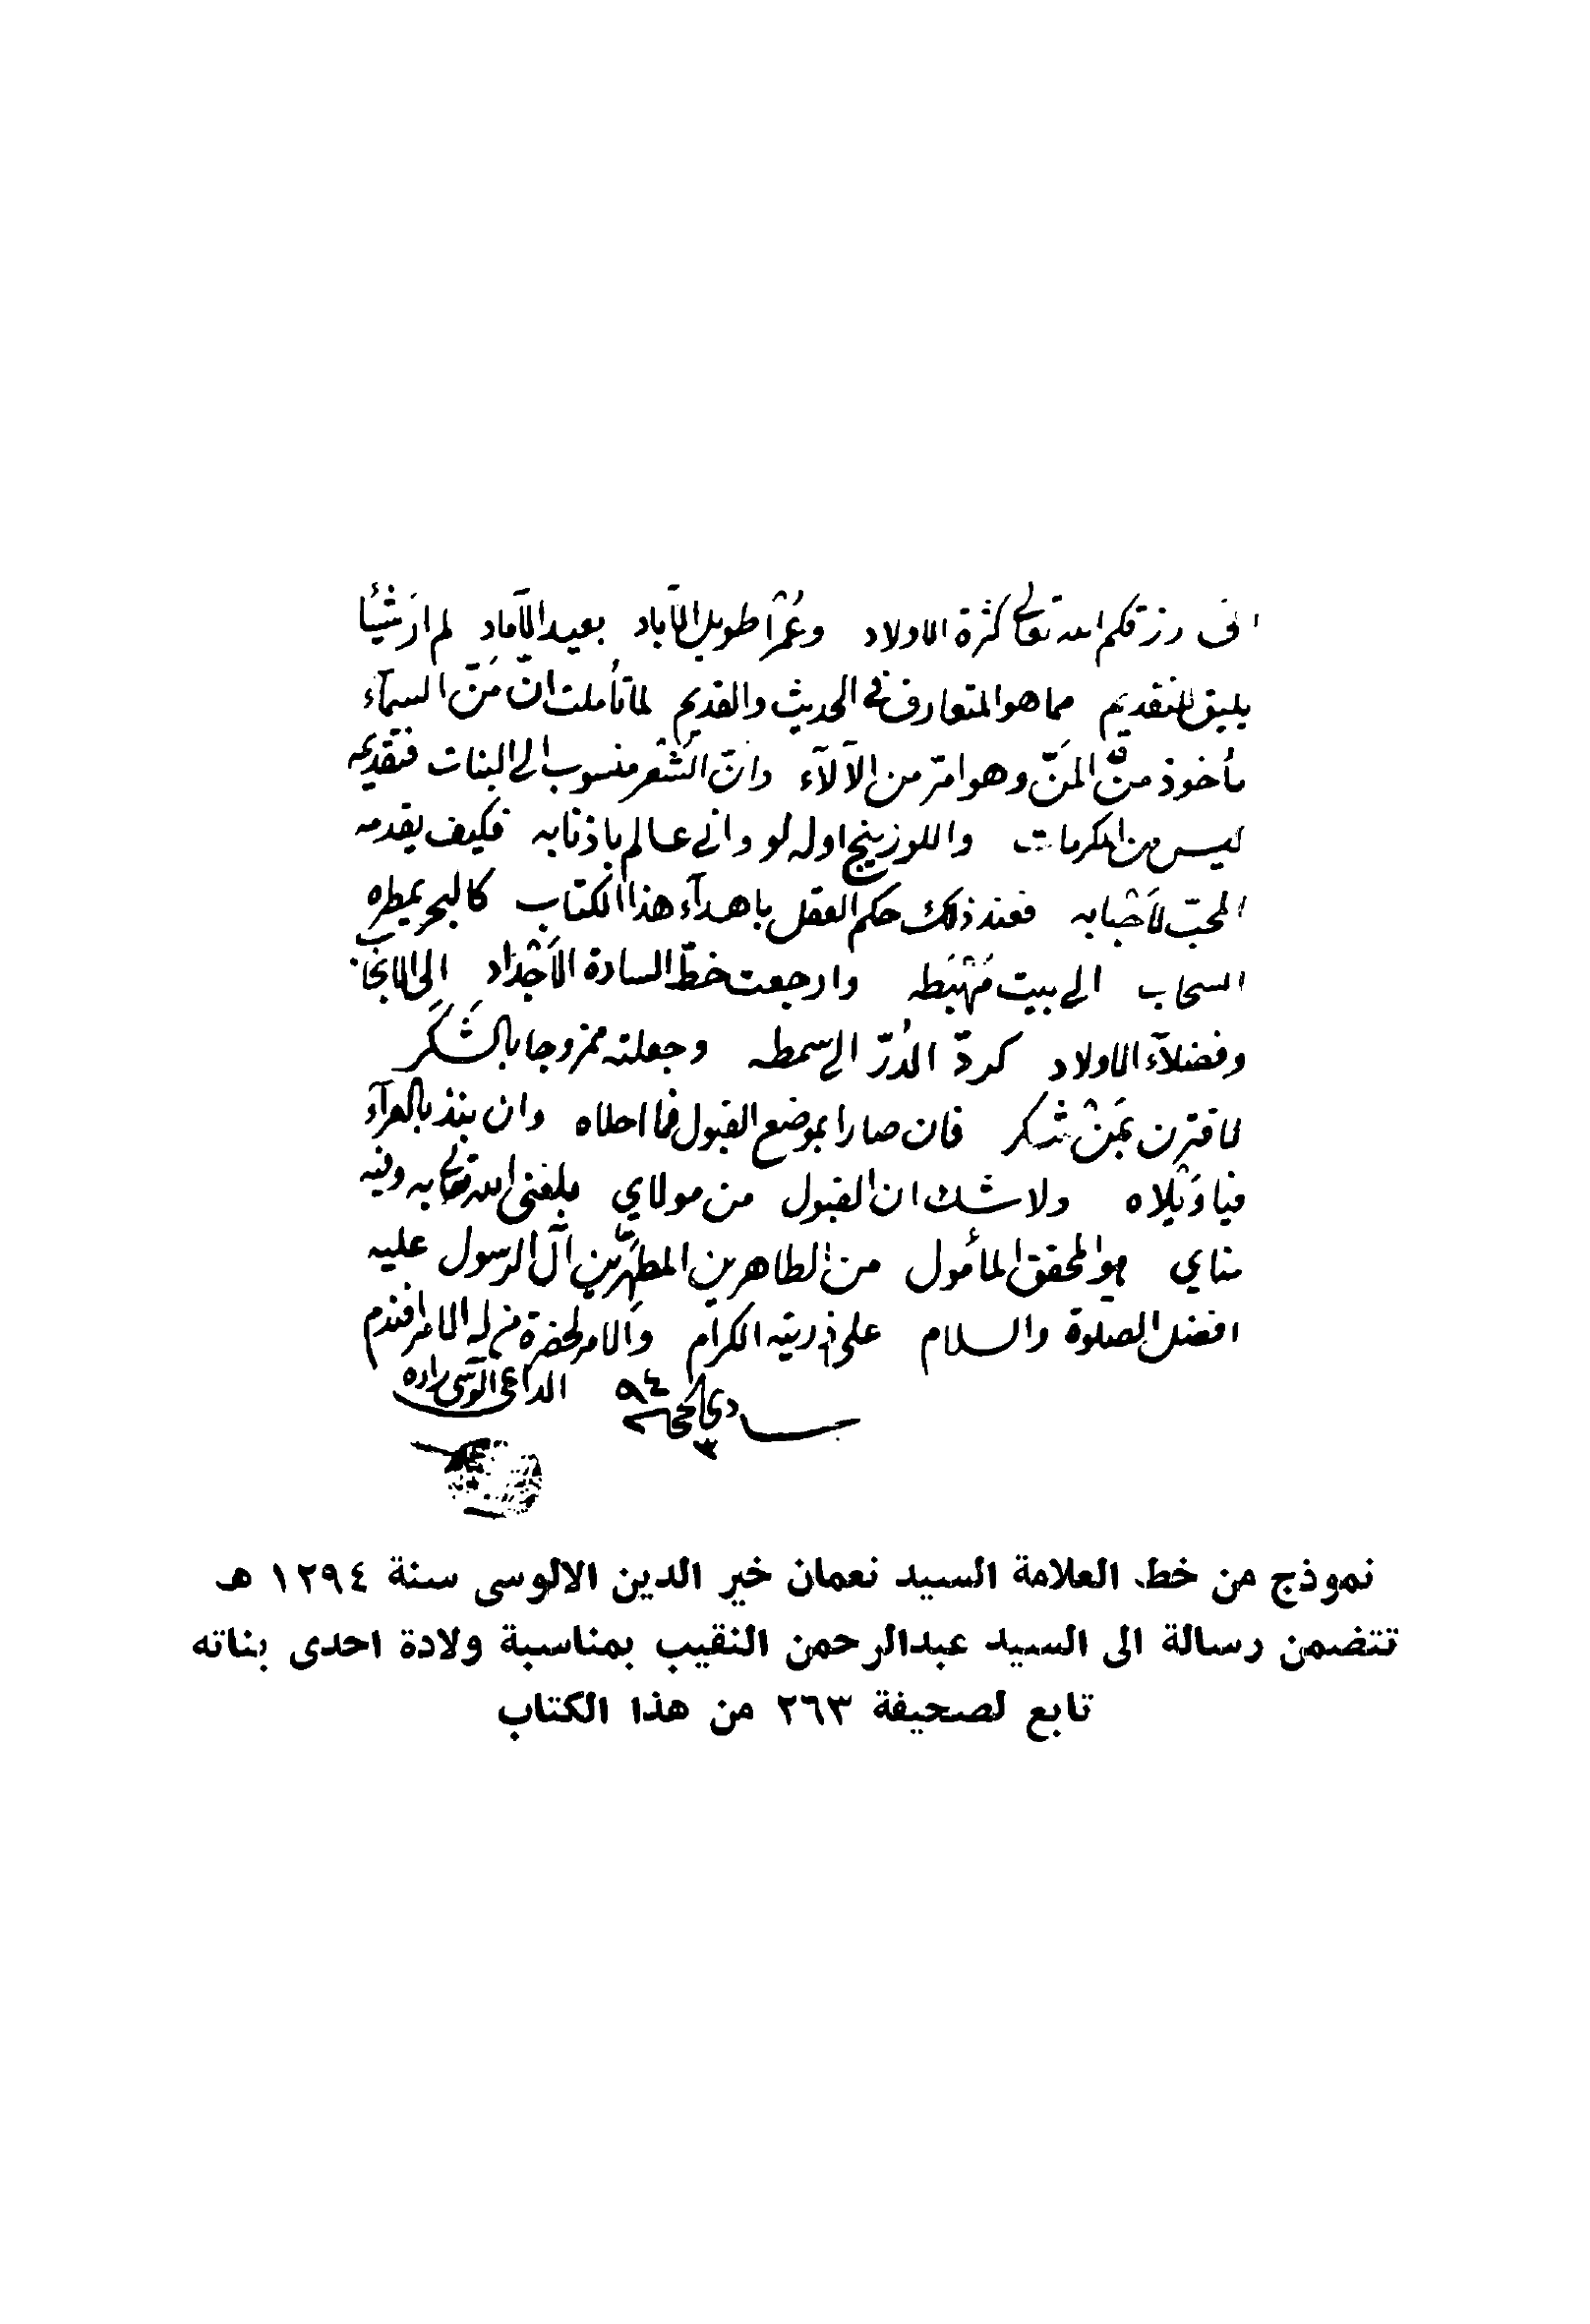 انى رزقكم الله تعالى كثرة الاولاد وعُمْرًا طويل الآباد بعيد الآماد لم ار شَيْئًا
يليق للتقديم مما هو المتعارف فى الحديث والقديم لما تأملت انّ مَنّ السمآء
مأخوذ منَ المَنّ وهو امرّ من الآلآء وانّ الشَعْر منسوب الى البنات فتقديمه
ليس من المكرمات واللوزينج اوله لو وانى عالم باذنابه فكيف يقدمه
المحبّ لأحْبابه فعند ذلك حكم العقل باهدآء هذا الكتاب كالبحر يمطره
السحاب الى بيت مَهْبَطه وارجعت خطّ السادة الأجْدَاد الى الانجاب
وفضلآء الاولاد كردّ الدُرّ الى سمطه وجعلته ممزوجا بالشَكَر
لما قترن بمَنْ شكر فان صارا بموضع القبول فما احلاه وان ينذ بالعرآء
فياوَيْلاه ولا شك ان القبول من مولاي بلغنى الله تعالى به وفيه
مناي هو المحقق المأمول من الطاهرين المطهَّرين آل الرسول عليه
افضل الصلوة والسلام على ذريته الكرام والامر لحضرة من له الامر افندم
٩٤ الداعى آلوسى زاده
٣
نموذج من خط العلامة السيد نعمان خير الدين الالوسى سنة ١٢٩٤ هـ
تتضمن رسالة الى السيد عبدالرحمن النقيب بمناسبة ولادة احدى بناته
تابع لصحيفة ٢٦٣ من هذا الكتاب